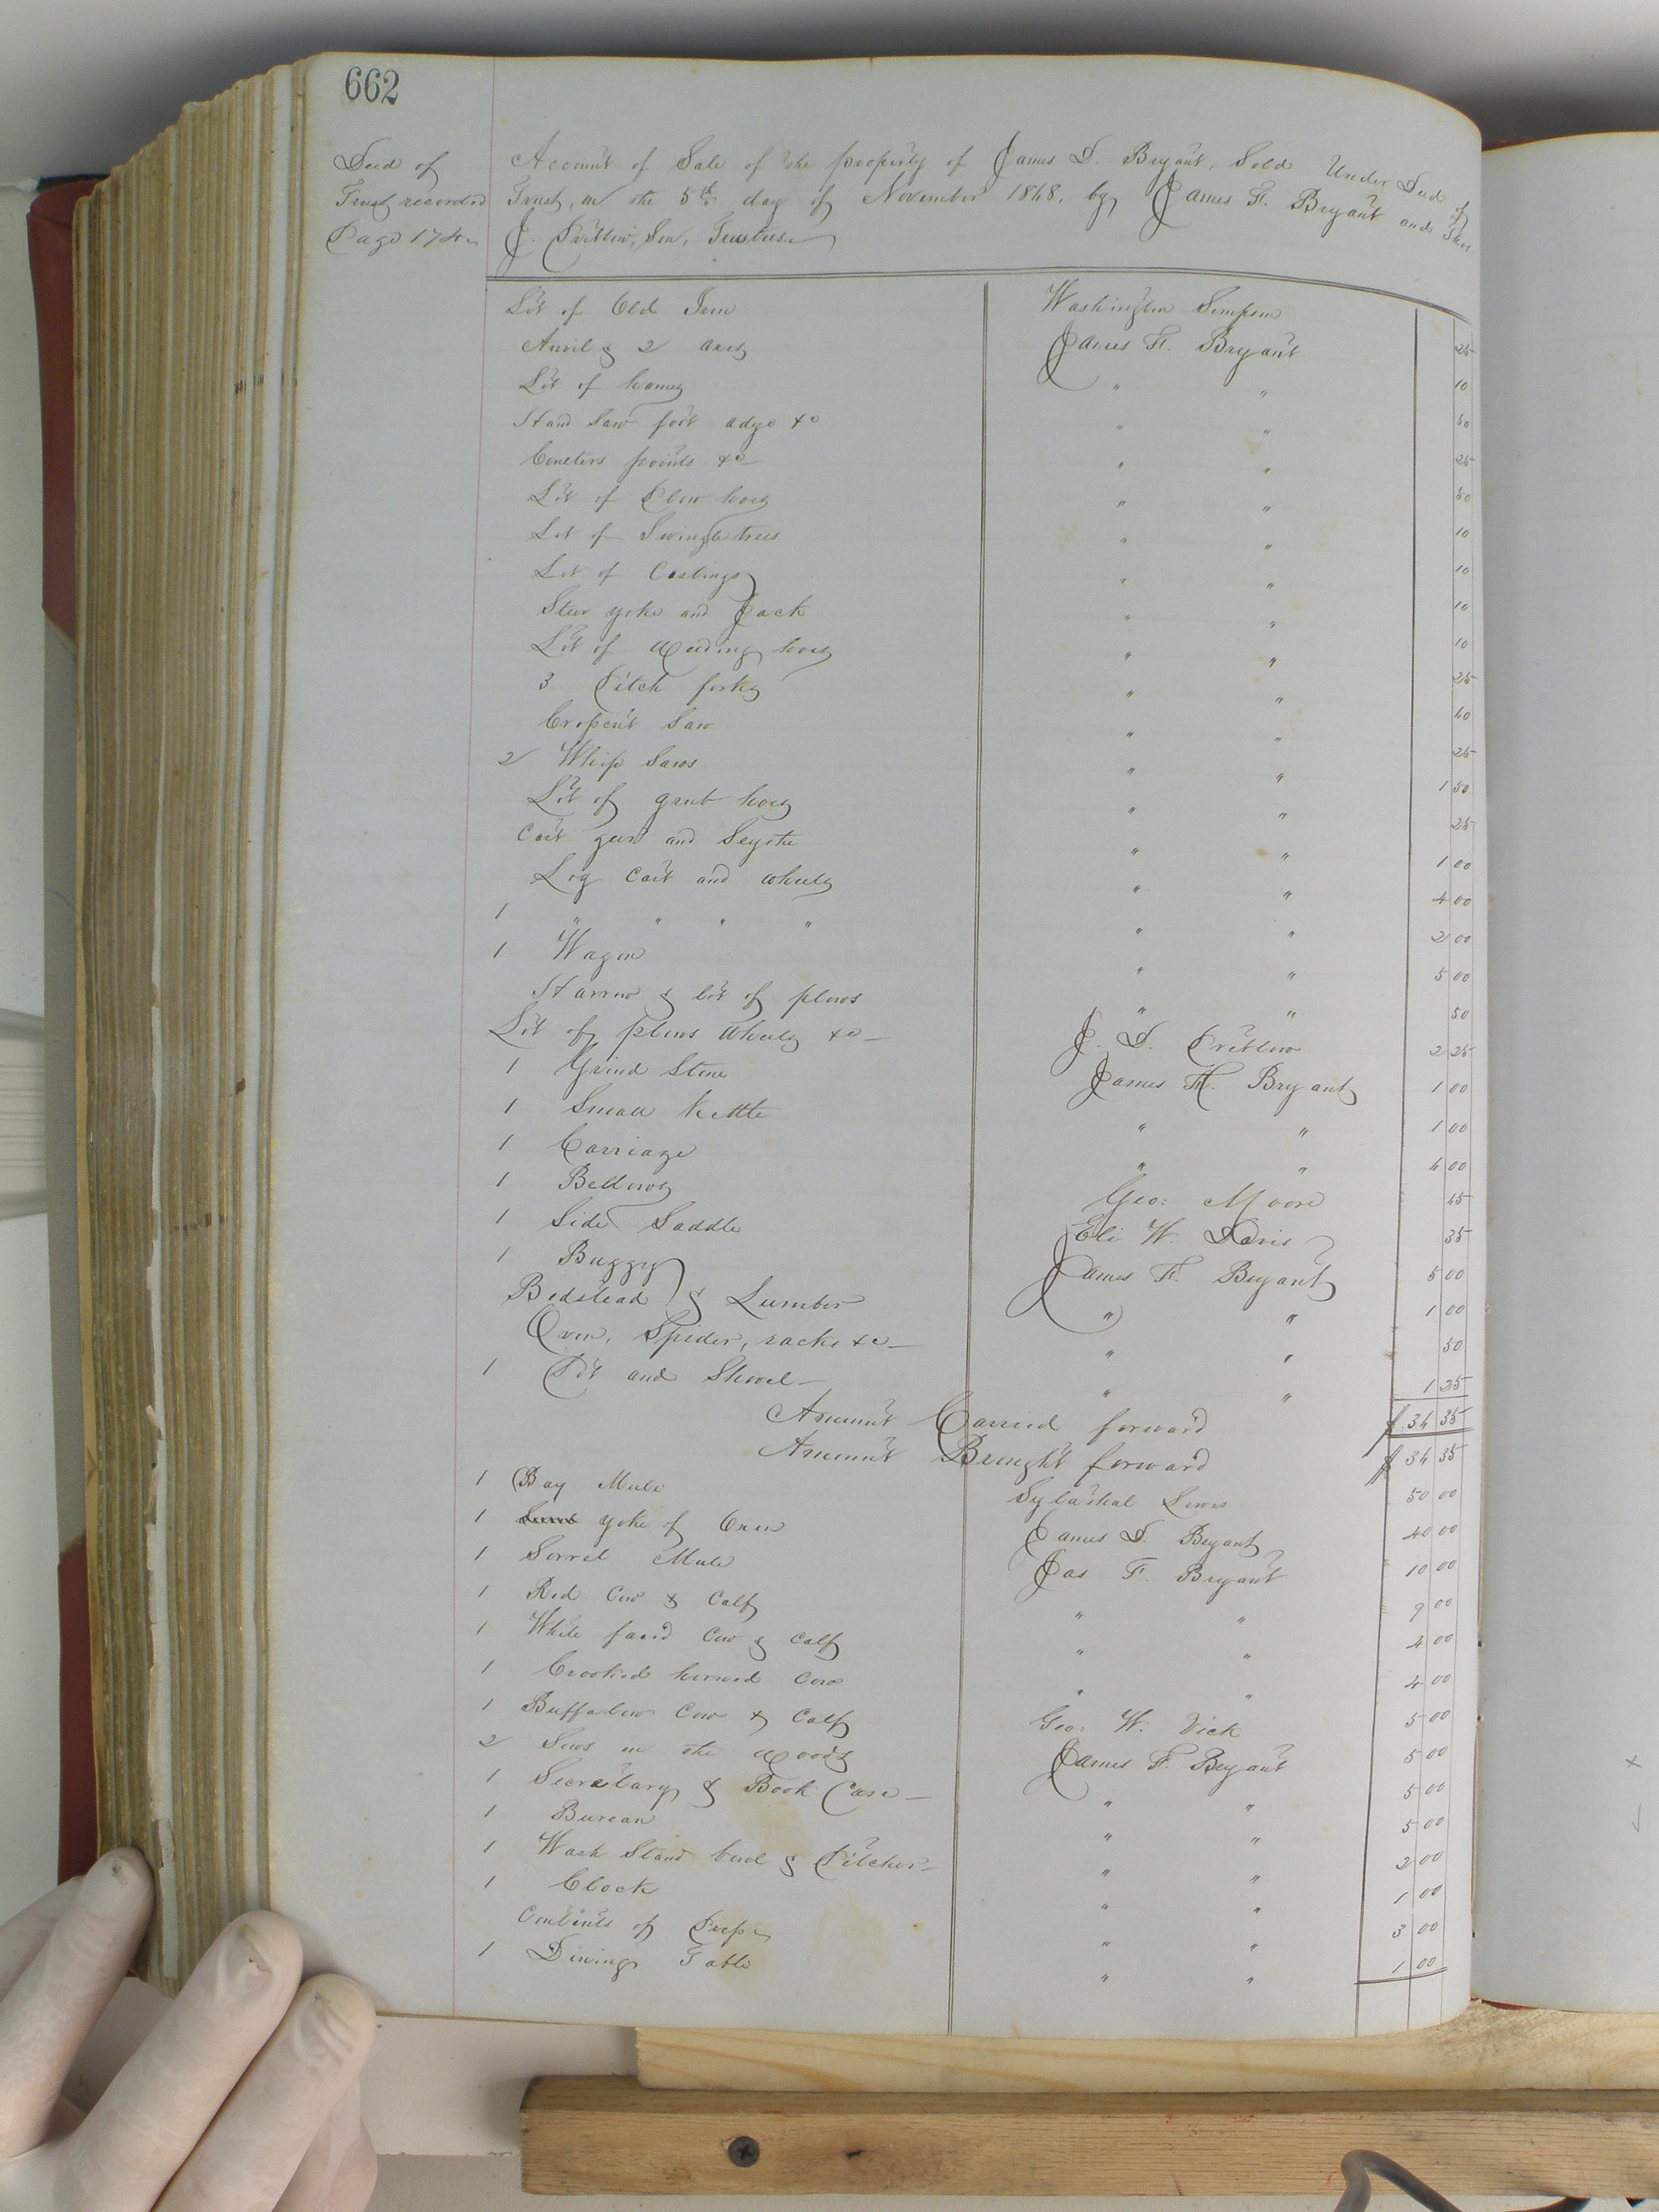 662
Deed of
Trust recorded
Page 174
Account of Sale of the property of James D. Bryant, Sold Under Deed of
Trust, on the 5th day of November 1868, by James F. Bryant and
J. Pretlow, Sen, Trustees
Lot of Old Iron Washington Simpson 25
Anvil & 2 axes James F. Bryant 10
Lot of hames " " 50
Hand Saw foot adze &c " " 25
Coulters points &c " " 50
Lot of Plow hoes " " 10
Lot of Swingletrees " " 10
Lot of Castings " " 10
Steer yoke and Jack " " 10
Lot of Weeding hoes " " 25
3 Pitch forks " " 60
Croscut Saw " " 25
2 Whip Saws " " 1 50
Lot of grub hoes " " 25
Cart gear and Scythe " " 1 00
Log Cart and Wheels " " 4 00
1 " " " " " " 2 00
1 Wagon " " 5 00
Harrow & lot of plows " " 50
Lot of plows Wheels &c J. D. Pretlow 2 25
1 Grind Stone James F. Bryant 1 00
1 Small Kettle " " 1 00
1 Carriage " " 6 00
1 Bellows Geo: Moore 65
1 Side Saddle Eli W. Davis 35
1 Buggy James F. Bryant 5 00
Bedstead & Lumber " " 1 00
Oven, Spider, racks &c " " 50
1 Pot and Shovel " " 1 25
Amount Carried forward $ 36 35
Amount Brought forward $ 36 35
1 Bay Mule Lewis 50 00
1 yoke of Oxen James D. Bryant 40 00
1 Sorrel Mule Jas F. Bryant 10 00
1 Red Cow & Calf " " 9 00
1 White faced Cow & Calf " " 4 00
1 Crooked horned Cow " " 4 00
1 Buffalow Cow & Calf Geo: W. Vick 5 00
2 Sows in the Woods James F. Bryant 5 00
1 Secretary & Book Case " " 5 00
1 Bureau " " 5 00
1 Wash Stand bowl & Pitcher " " 2 00
1 Clock " " 1 00
Contents of " " 3 00
1 Dining Table " " 1 00